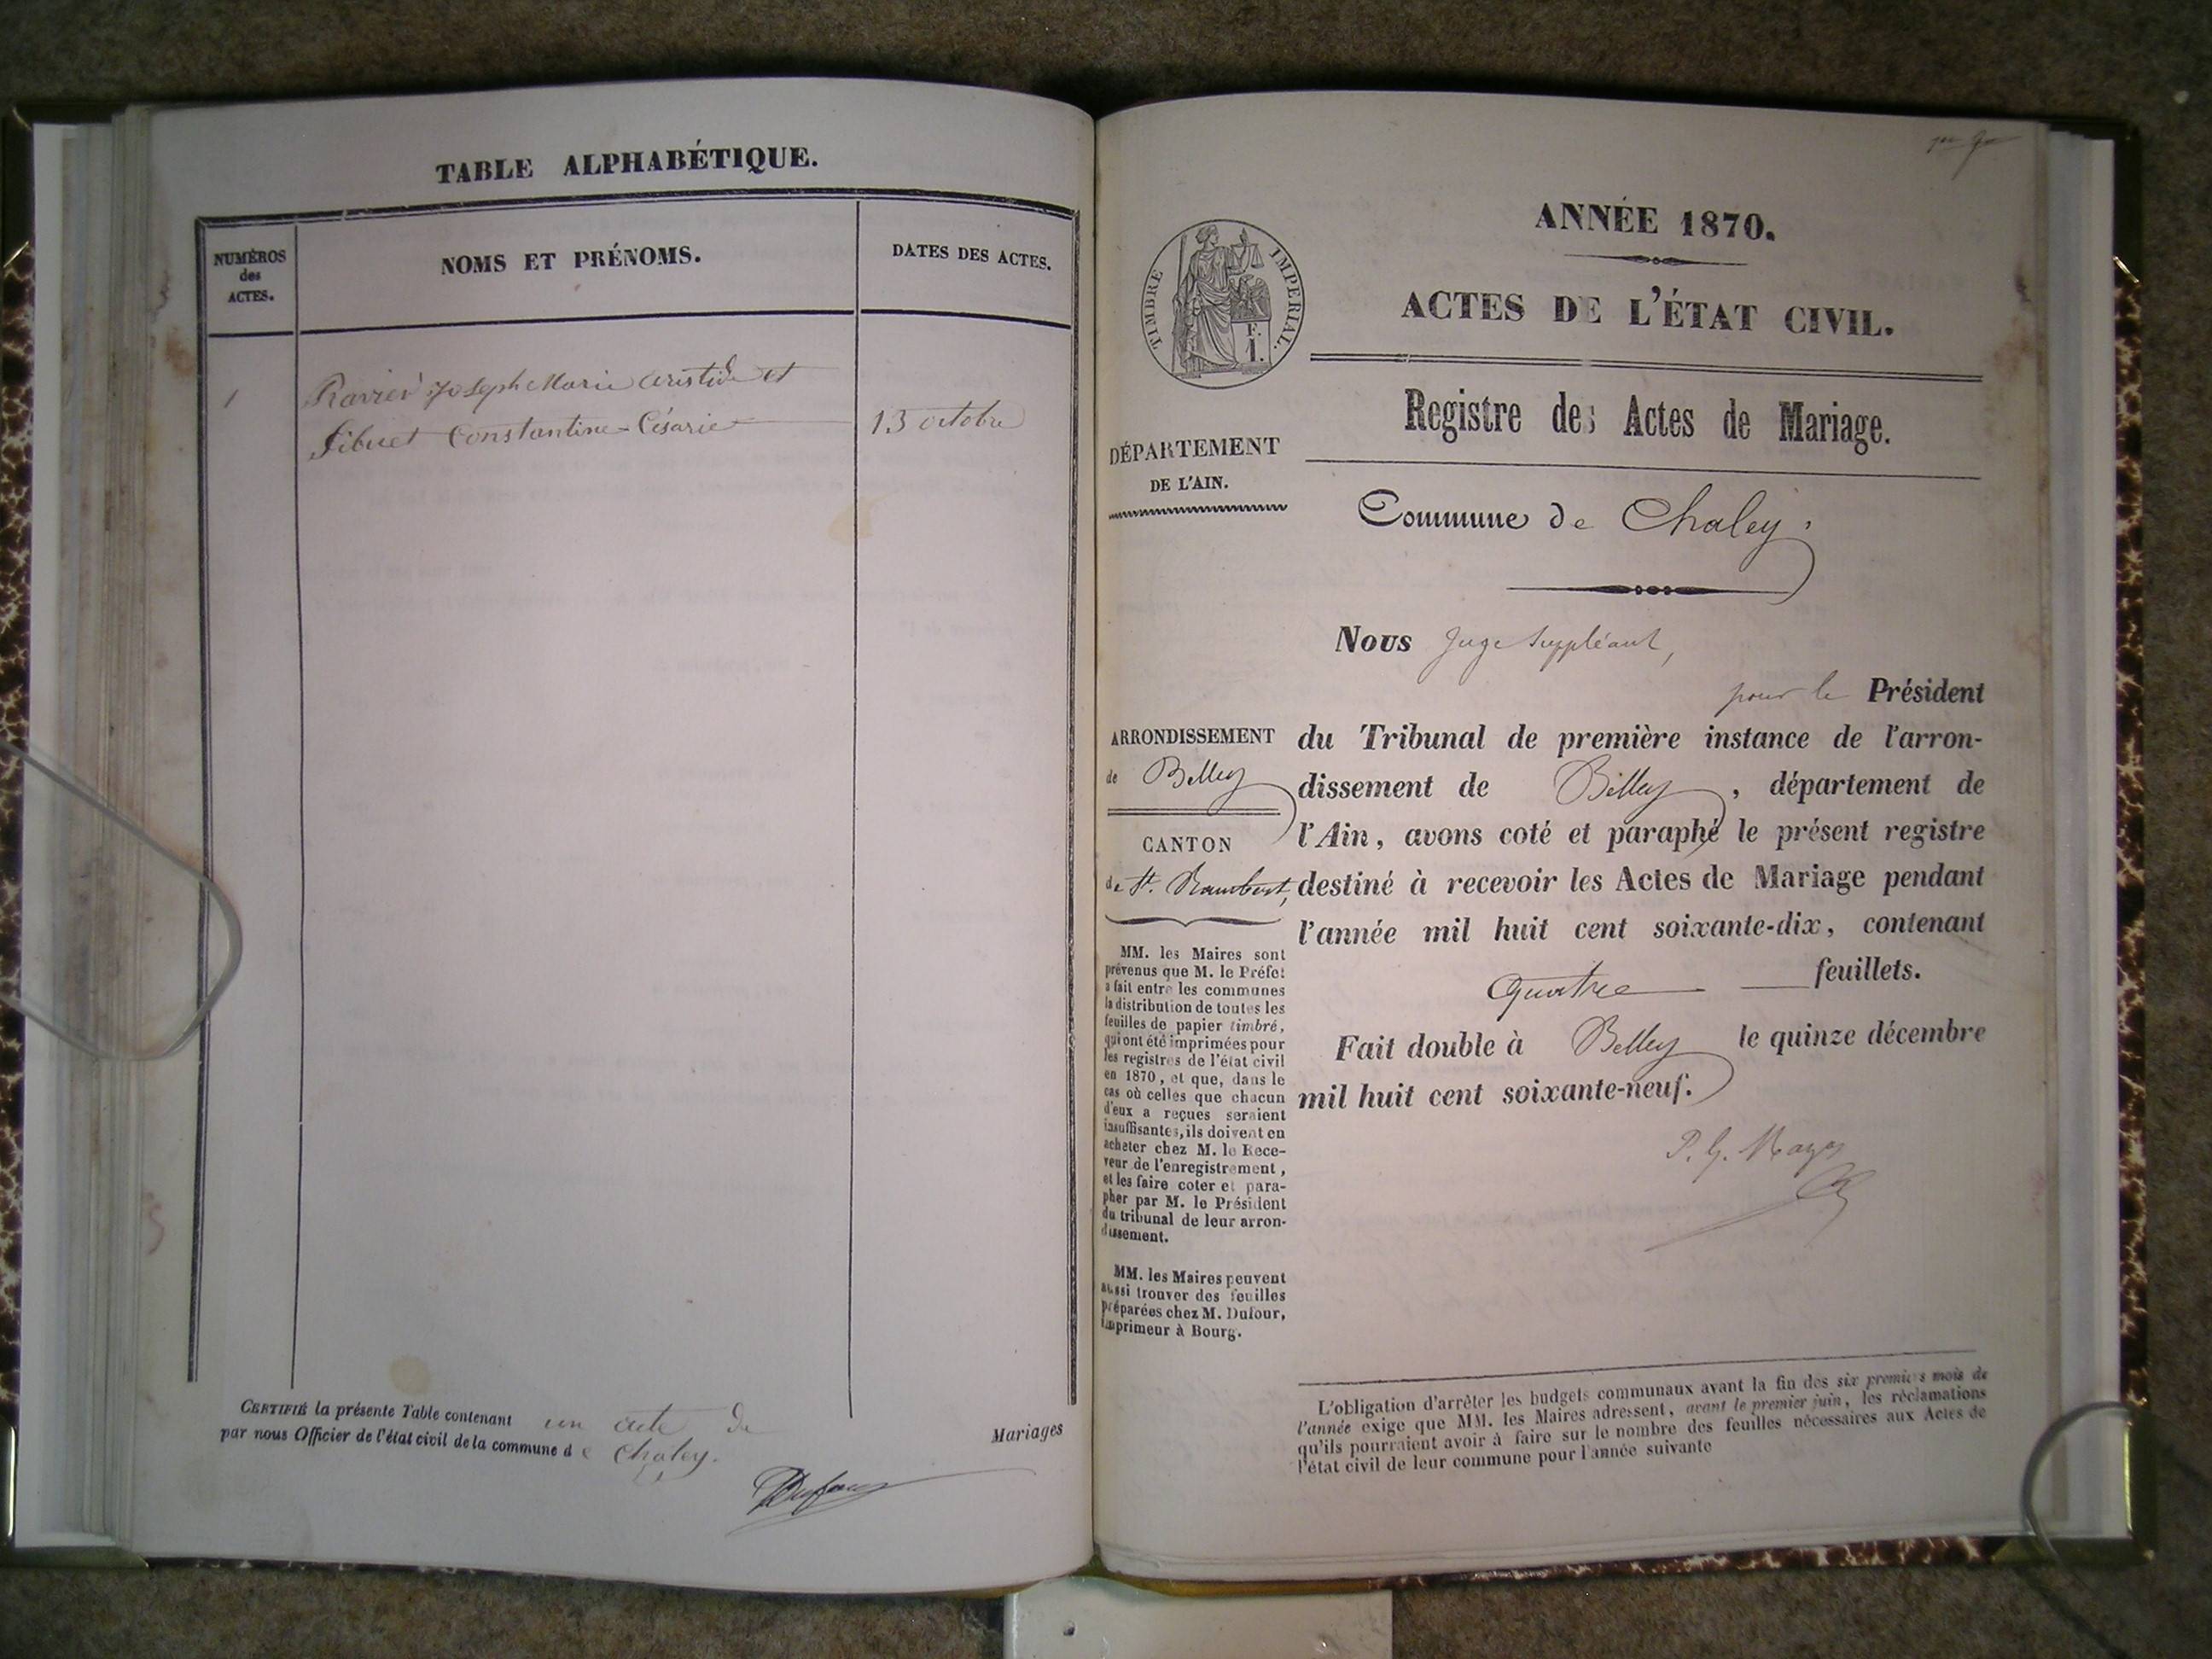 TABLE ALPHABÉTIQUE.
NUMÉROS
des
ACTES.
NOMS ET PRÉNOMS.
DATES DES ACTES.
1
Ravier Joseph Marie Aristide et
Sibuet Constantine-Césarie
13 octobre
CERTIFIÉ la présente Table contenant un acte de Mariages
par nous Officier de l'état civil de la commune de Chaley.
ANNÉE 1870.
TIMBRE IMPERIAL.
F.
1.
ACTES DE L'ÉTAT CIVIL.
Registre des Actes de Mariage.
DÉPARTEMENT
DE L'AIN.
Commune de Chaley.
Nous Juge Suppléant,
pour le Président
du Tribunal de première instance de l'arron-
dissement de Belley, département de
l'Ain, avons coté et paraphé le présent registre
destiné à recevoir les Actes de Mariage pendant
l'année mil huit cent soixante-dix, contenant
quatre feuillets.
Fait double à Belley le quinze décembre
mil huit cent soixante-neuf.
ARRONDISSEMENT
de Belley
CANTON
de St. Rambert,
MM. les Maires sont
prévenus que M. le Préfet
a fait entre les communes
la distribution de toutes les
feuilles de papier timbré,
qui ont été imprimées pour
les registres de l'état civil
en 1870, et que, dans le
cas où celles que chacun
d'eux a reçues seraient
insuffisantes, ils doivent en
acheter chez M. le Rece-
veur de l'enregistrement,
et les faire coter et para-
pher par M. le Président
du tribunal de leur arron-
dissement.
MM. les Maires peuvent
aussi trouver des feuilles
préparées chez M. Dufour,
imprimeur à Bourg.
L'obligation d'arrêter les budgets communaux avant la fin des six premiers mois de
l'année exige que MM. les Maires adressent, avant le premier juin, les réclamations
qu'ils pourraient avoir à faire sur le nombre des feuilles nécessaires aux Actes de
l'état civil de leur commune pour l'année suivante